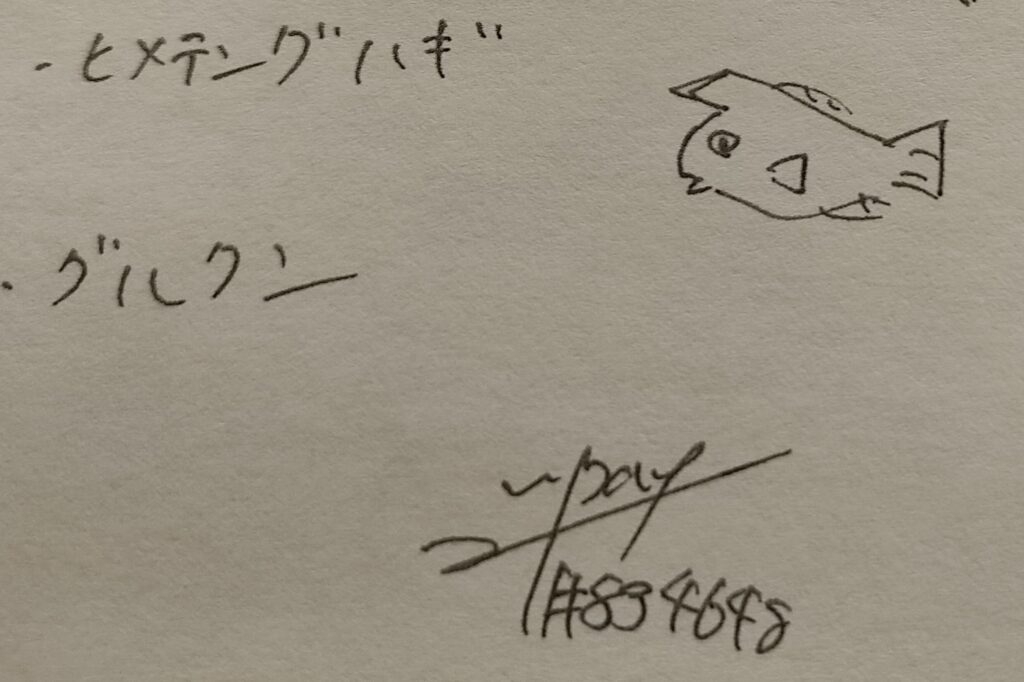 ・ヒメテングハギ
・グルクン
#834648